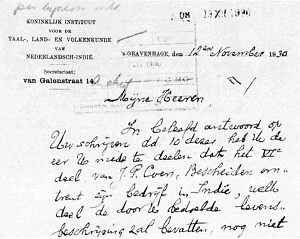 per bijzondere
A 08 13 XII 1930
KONINKLIJK INSTITUUT
VOOR DE
TAAL-, LAND- EN VOLKENKUNDE
VAN
NEDERLANDSCH-INDIË.
'S-GRAVENHAGE, den 12den November 1930
Secretariaat:
van Galenstraat 14
Mijne Heeren,
In beleefd antwoord op
Uw schrijven dd 10 dezer heb ik de
eer U mede te deelen dat het VIe
deel van J. P. Coen, Bescheiden om-
trent zijn bedrijf in Indië, welk
deel de door U bedoelde levens
beschrijving zal bevatten, nog niet